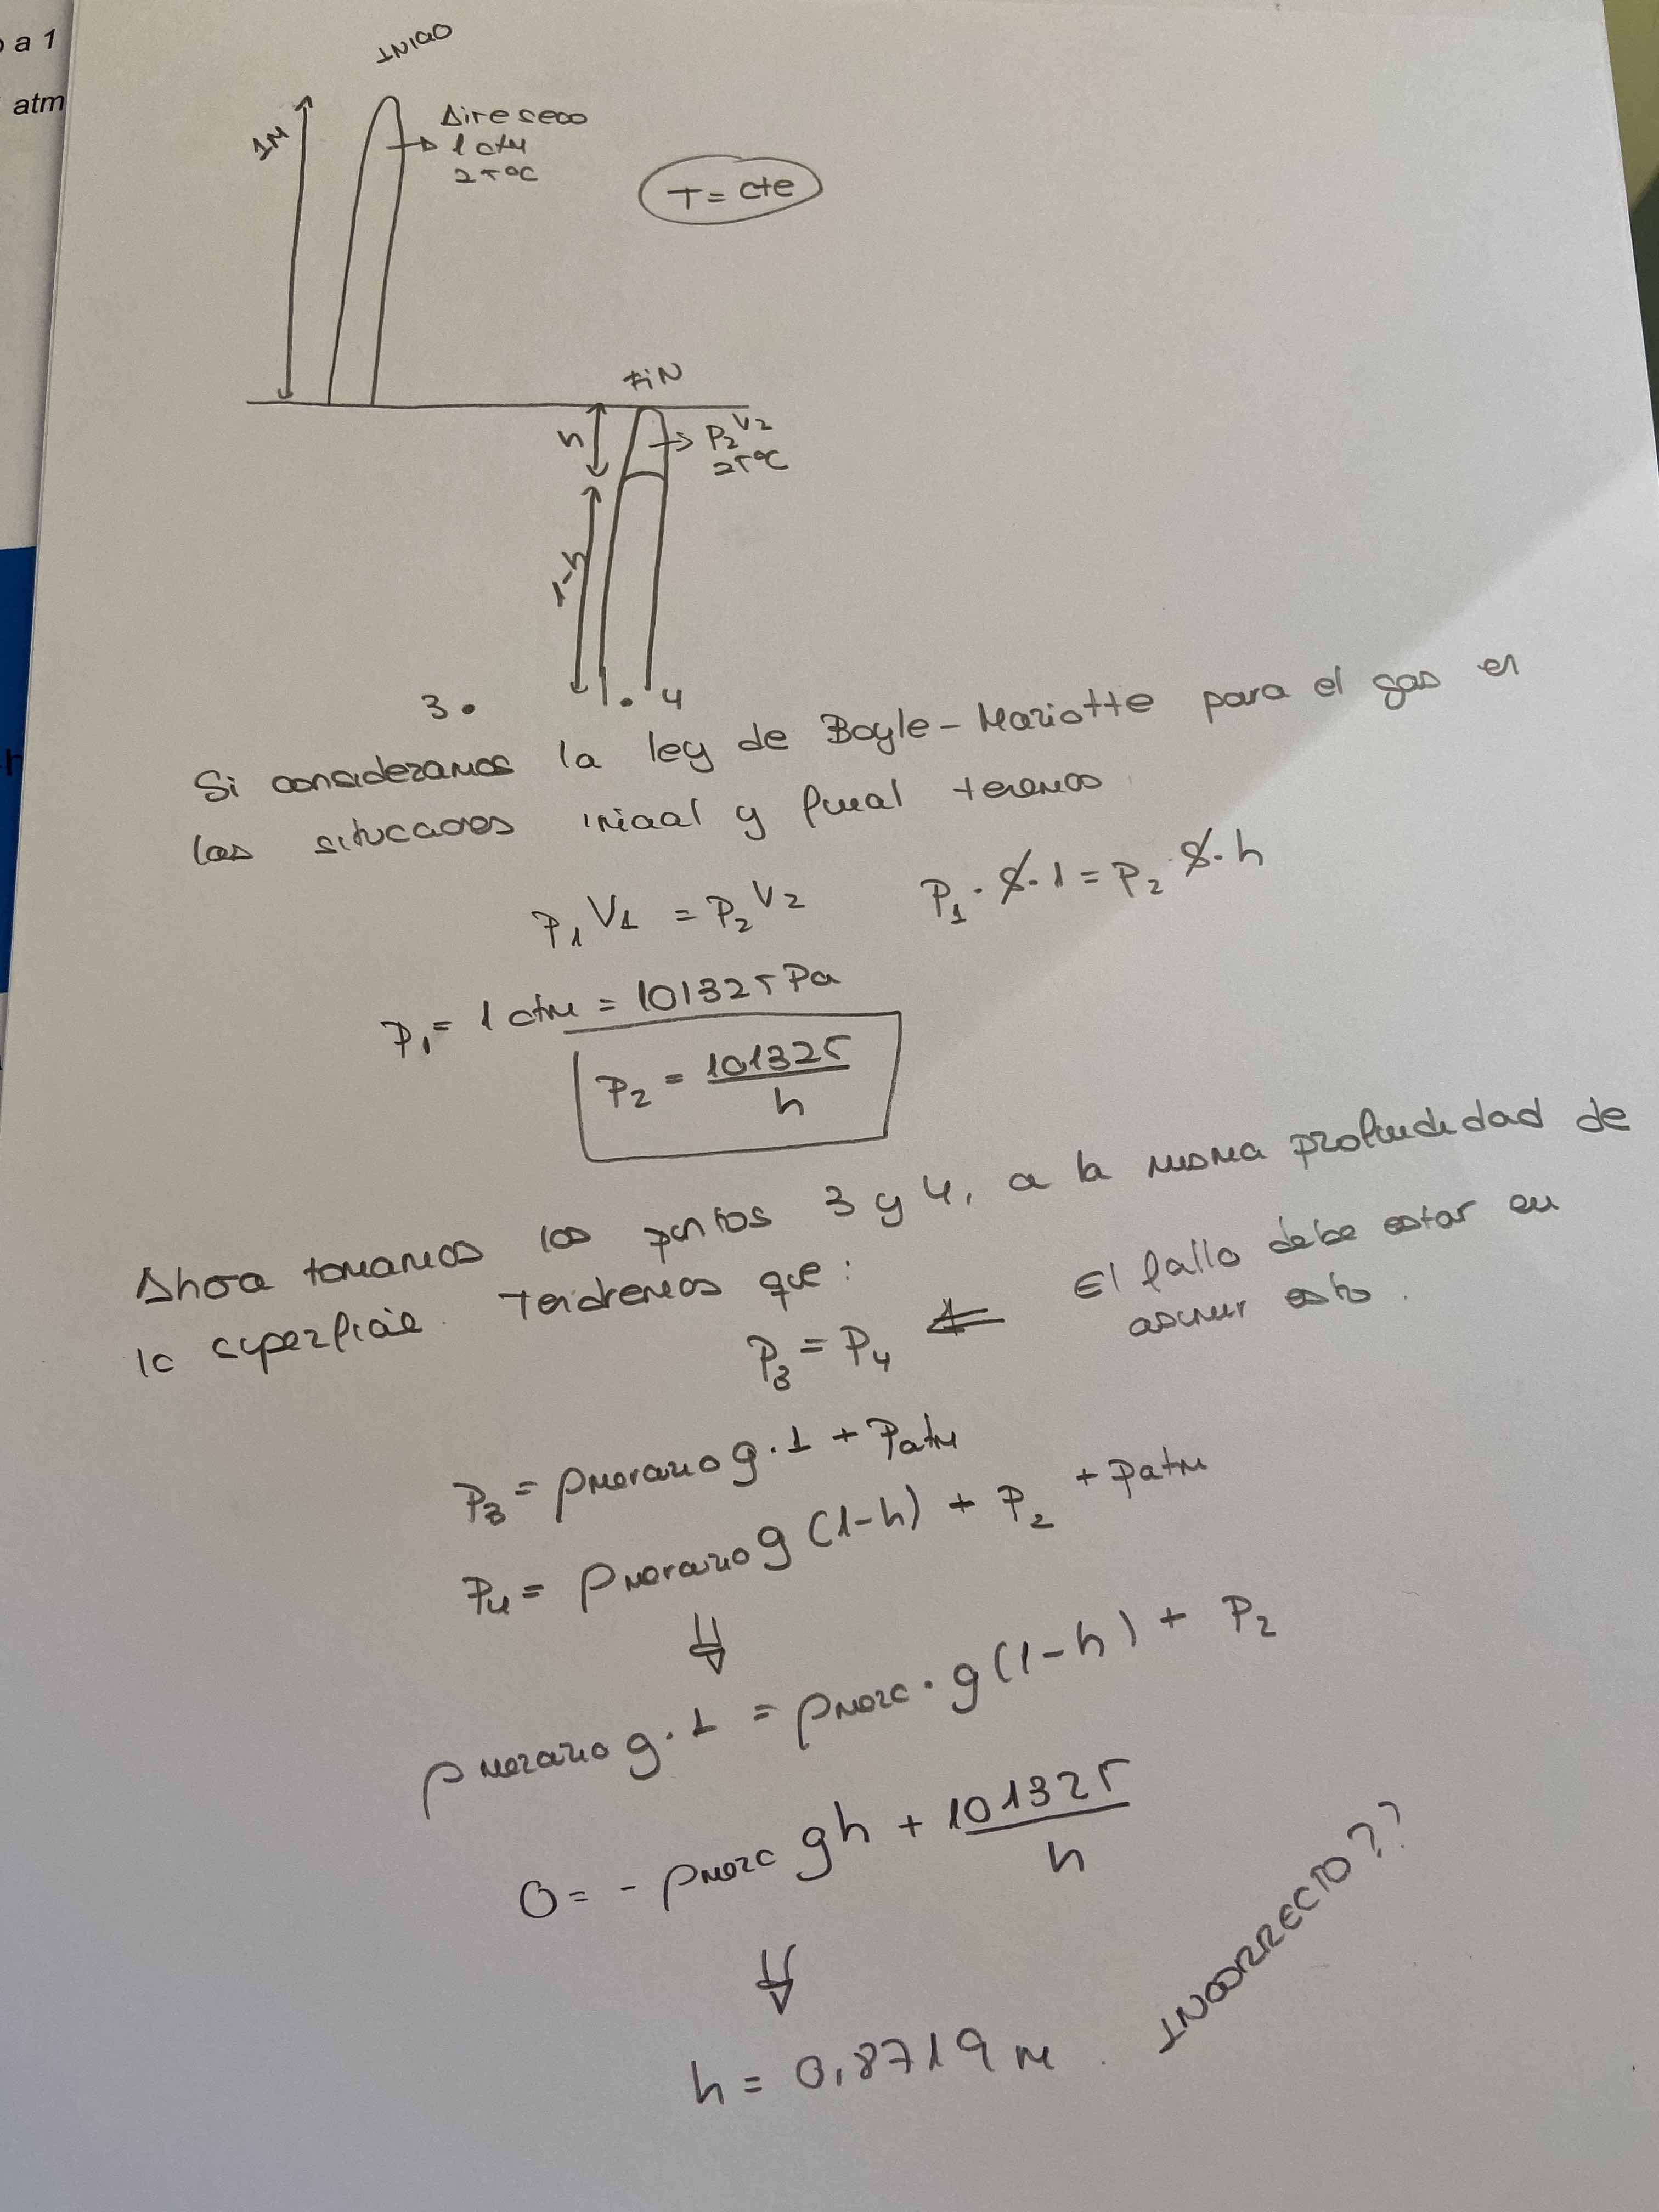 a 1
atm
INICIO
1M
Aire seco
1 atm
25ºC
T = cte
FIN
h
P2 V2
25ºC
1-h
3.
. 4
Si consideramos la ley de Boyle-Mariotte para el gas en
las situaciones inicial y final tenemos
P1 V1 = P2 V2 P1 . S . 1 = P2 S . h
P1 = 1 atm = 101325 Pa
P2 = 101325 / h
Ahora tomamos los puntos 3 y 4, a la misma profundidad de
la superficie. Tendremos que:
P3 = P4 ⇐ El fallo debe estar en
asumir esto.
P3 = ρmercurio g . 1 + Patm
P4 = ρmercurio g (1-h) + P2 + Patm
⇓
ρmercurio g . 1 = ρmerc . g (1-h) + P2
0 = - ρmerc gh + 101325 / h
⇓
h = 0,8719 m. INCORRECTO??